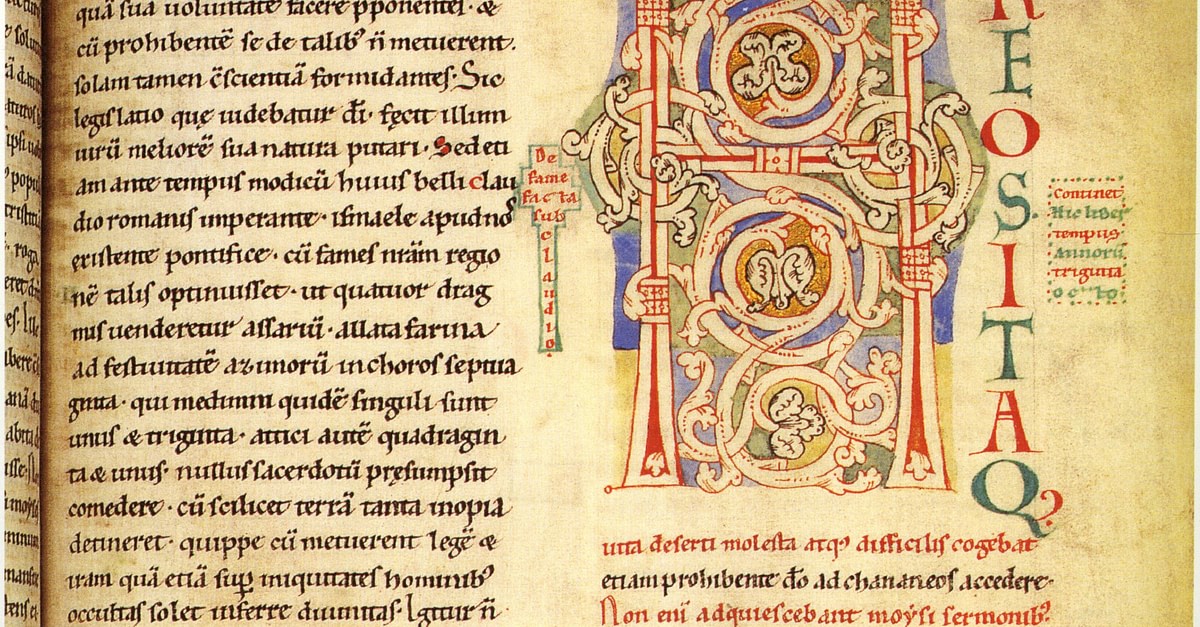 quā sua voluntate facere pponentes. &
cū prohibentē se de talib' n̄ metuerent.
solam tamen ɔ̄scientiā formidantes. Sic
legislatio quę uidebatur dī. fęcit illum
uirū meliorē sua natura putari. Sed eti
am ante tempus modicū huius belli clau
dio romanis imperante. ismaele apud nos
existente pontifice. cū fames nr̄am regio
nē talis optinuisset. ut quatuor drag
mis uenderetur assariū. allata farina
ad festiuitatē azimorū in choros septua
ginta. qui medimni quidē singuli sunt
unus & triginta. attici autē quadragin
ta & unus. nullus sacerdotū pręsumpsit
comedere. cū scilicet terrā tanta inopia
detineret. quippe cū metuerent legē &
iram quā etiā sup iniquitates hominib'
occultas solet inferre diuinitas. Igitur n̄
De
fame
facta
sub
claudio.
H
R
E
O
S.
I
T
A
Q?
Continet
hic liber
tempus
annorū
triginta
octo
uita deserti molesta atq; difficilis cogebat
etiam prohibente dō ad chananeos accedere.
Non enī adquiescebant moysi sermonib'